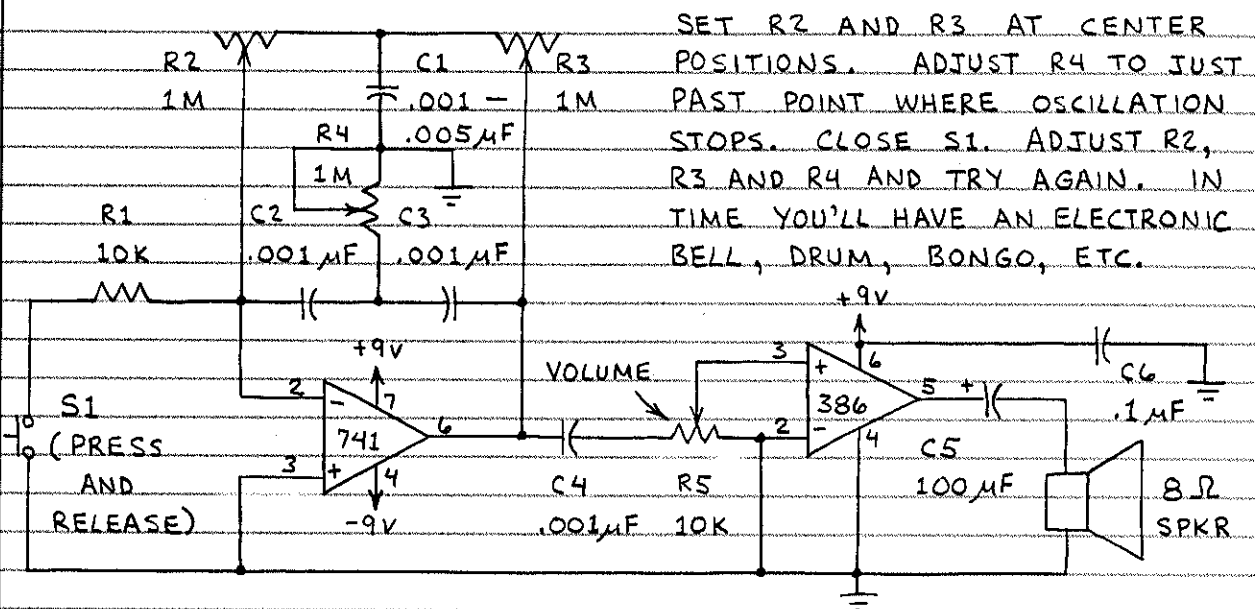 SET R2 AND R3 AT CENTER
POSITIONS. ADJUST R4 TO JUST
PAST POINT WHERE OSCILLATION
STOPS. CLOSE S1. ADJUST R2,
R3 AND R4 AND TRY AGAIN. IN
TIME YOU'LL HAVE AN ELECTRONIC
BELL, DRUM, BONGO, ETC.
R2
1M
C1
.001 –
.005µF
R3
1M
R4
1M
R1
10K
C2
.001µF
C3
.001µF
S1
(PRESS
AND
RELEASE)
+9V
2
-
7
741
6
3
+
4
-9V
VOLUME
C4
.001µF
R5
10K
+9V
3
+
6
386
5
+
2
-
4
C6
.1µF
C5
100µF
8Ω
SPKR